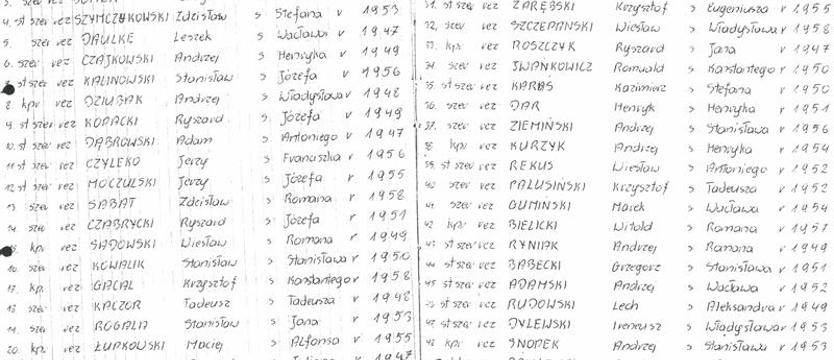 4. st szer vez SZYMCZYKOWSKI Zdzisław s Stefana v 1953
5. szer vez JAULKE Leszek s Wacława v 1947
6. szer vez CZAJKOWSKI Andrzej s Henryka v 1949
7. st szer vez KALINOWSKI Stanisław s Józefa v 1956
8. kpr vez DZIUBAK Andrzej s Władysława v 1948
9. st szer vez KOPACKI Ryszard s Józefa v 1949
10. st szer vez DĄBROWSKI Adam s Antoniego v 1947
11. st szer vez CZYLEKO Jerzy s Franciszka v 1956
12. st szer vez MOCZULSKI Jerzy s Józefa v 1955
13 szer vez SABAT Zdzisław s Romana v 1958
14 szer vez CZABRYCKI Ryszard s Józefa v 1951
15. kpr vez SADOWSKI Wiesław s Romana v 1949
16. szer vez KOWALIK Stanisław s Stanisława v 1950
17. kpr vez GACIAL Krzysztof s Konstantego v 1958
18. kpr vez KACZOR Tadeusz s Tadeusza v 1948
19. szer vez ROGALA Stanisław s Jana v 1953
20. kpr vez ŁUPKOWSKI Maciej s Alfonsa v 1955
v 1947
31. szer vez ZARĘBSKI Krzysztof s Eugeniusza v 1955
32. szer vez SZCZEPAŃSKI Wiesław s Władysława v 1958
33. kpr vez ROSZCZYK Ryszard s Jana v 1947
34. szer vez IWANKOWICZ Romuald s Konstantego v 1950
35. st szer vez KARAŚ Kazimierz s Stefana v 1950
36. szer vez DAR Henryk s Henryka v 1951
37. szer vez ZIEMIŃSKI Andrzej s Stanisława v 1956
38 kpr vez KURZYK Andrzej s Henryka v 1954
39. st szer vez REKUS Wiesław s Antoniego v 1952
40 szer vez PALUSIŃSKI Krzysztof s Tadeusza v 1952
41 szer vez GUMIŃSKI Marek s Wacława v 1954
42 kpr vez BIELICKI Witold s Romana v 1957
43 st szer vez RYNIAK Andrzej s Romana v 1949
44 st szer vez BABECKI Grzegorz s Stanisława v 1951
45 szer vez ADAMSKI Andrzej s Wacława v 1952
st szer vez RUDOWSKI Lech s Aleksandra v 1949
st szer vez DYLEWSKI Ireneusz s Władysława v 1953
kpr vez SNOPEK Andrzej s Stanisława v 1953